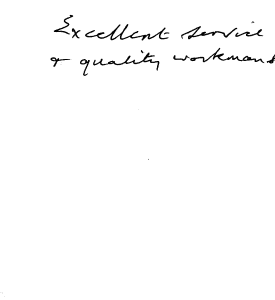 Excellent service
& quality workmans